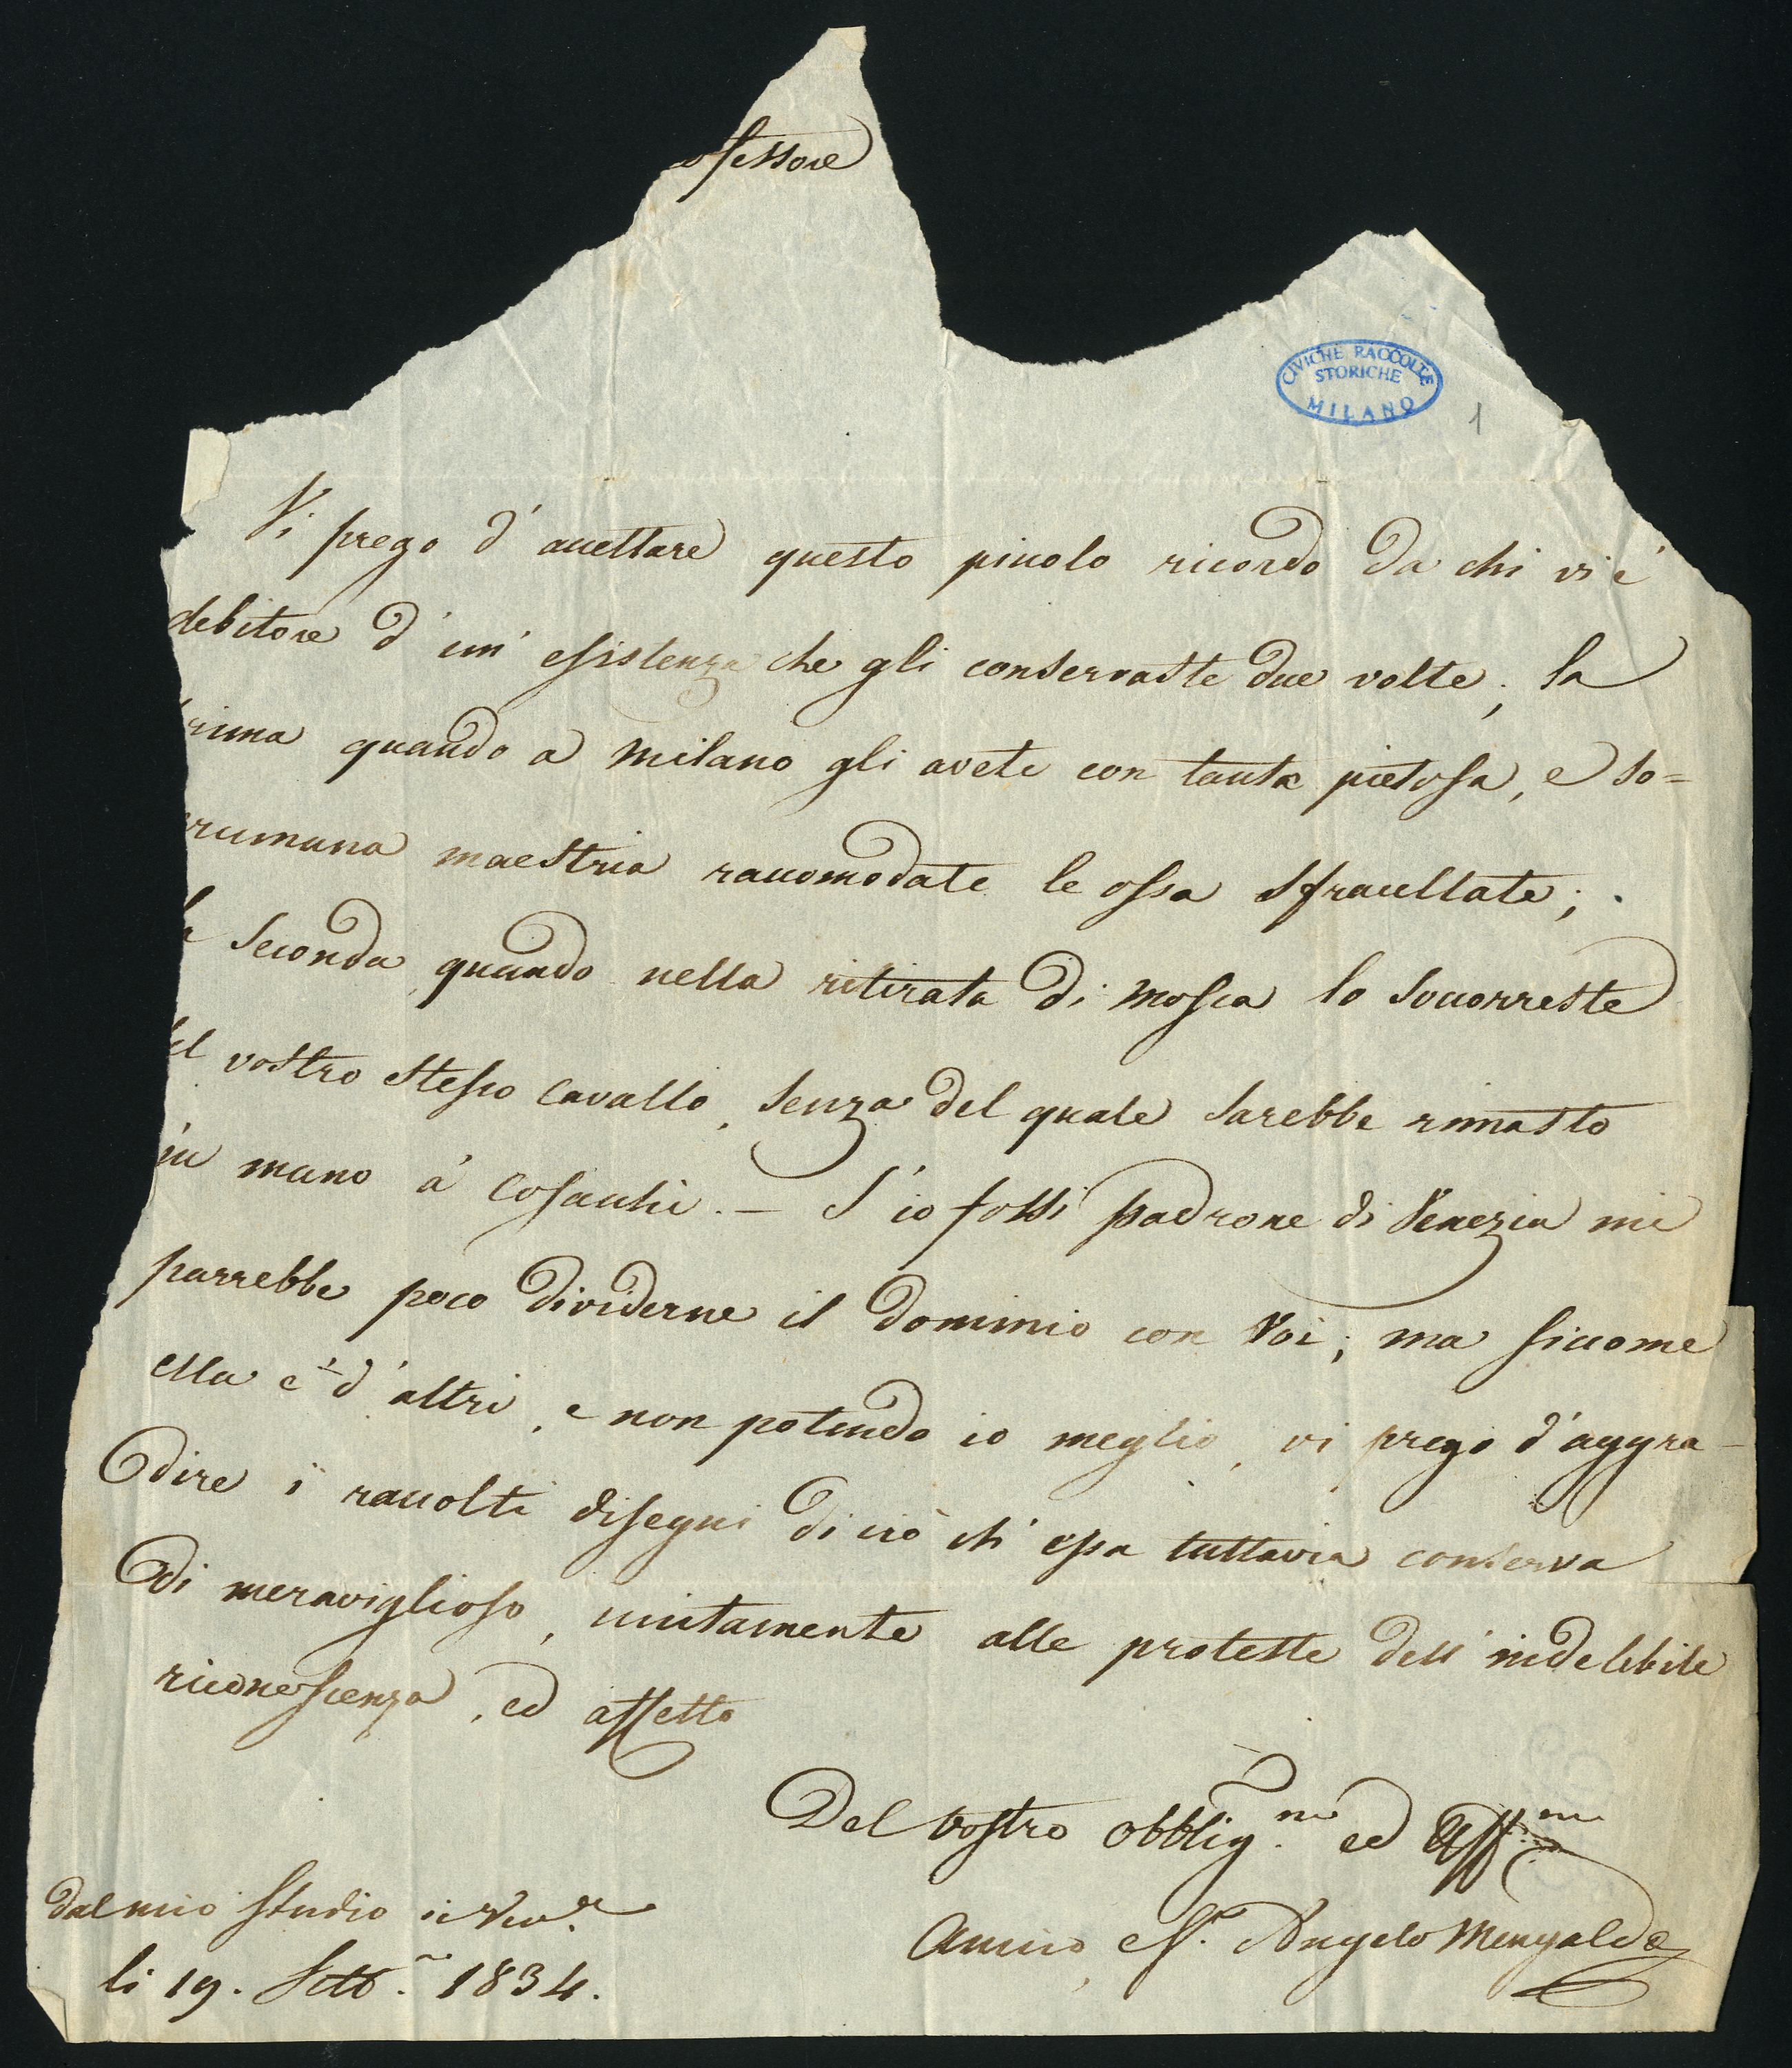 ofessore
CIVICHE RACCOLTE
STORICHE
MILANO
1
Vi prego d'accettare questo piccolo ricordo da chi vi è
debitore d'un'esistenza che gli conservaste due volte; la
rima quando a Milano gli avete con tanta pietosa, e so=
rumana maestria raccomodate le ossa sfracellate;
a seconda quando nella ritirata di Mosca lo soccorreste
el vostro stesso cavallo, senza del quale sarebbe rimasto
in mano a' Cosacchi. — S'io fossi padrone di Venezia mi
parrebbe poco dividerne il dominio con Voi; ma siccome
ella è d'altri, e non potendo io meglio, vi prego d'aggra-
dire i raccolti disegni di ciò ch'essa tuttavia conserva
di meraviglioso, unitamente alle proteste dell'indelebile
riconoscenza, ed affetto
Del vostro obblig.mo ed Aff.mo
Amico, Angelo Mengaldo
dal mio studio in Ven.a
li 19. Sett. 1834.